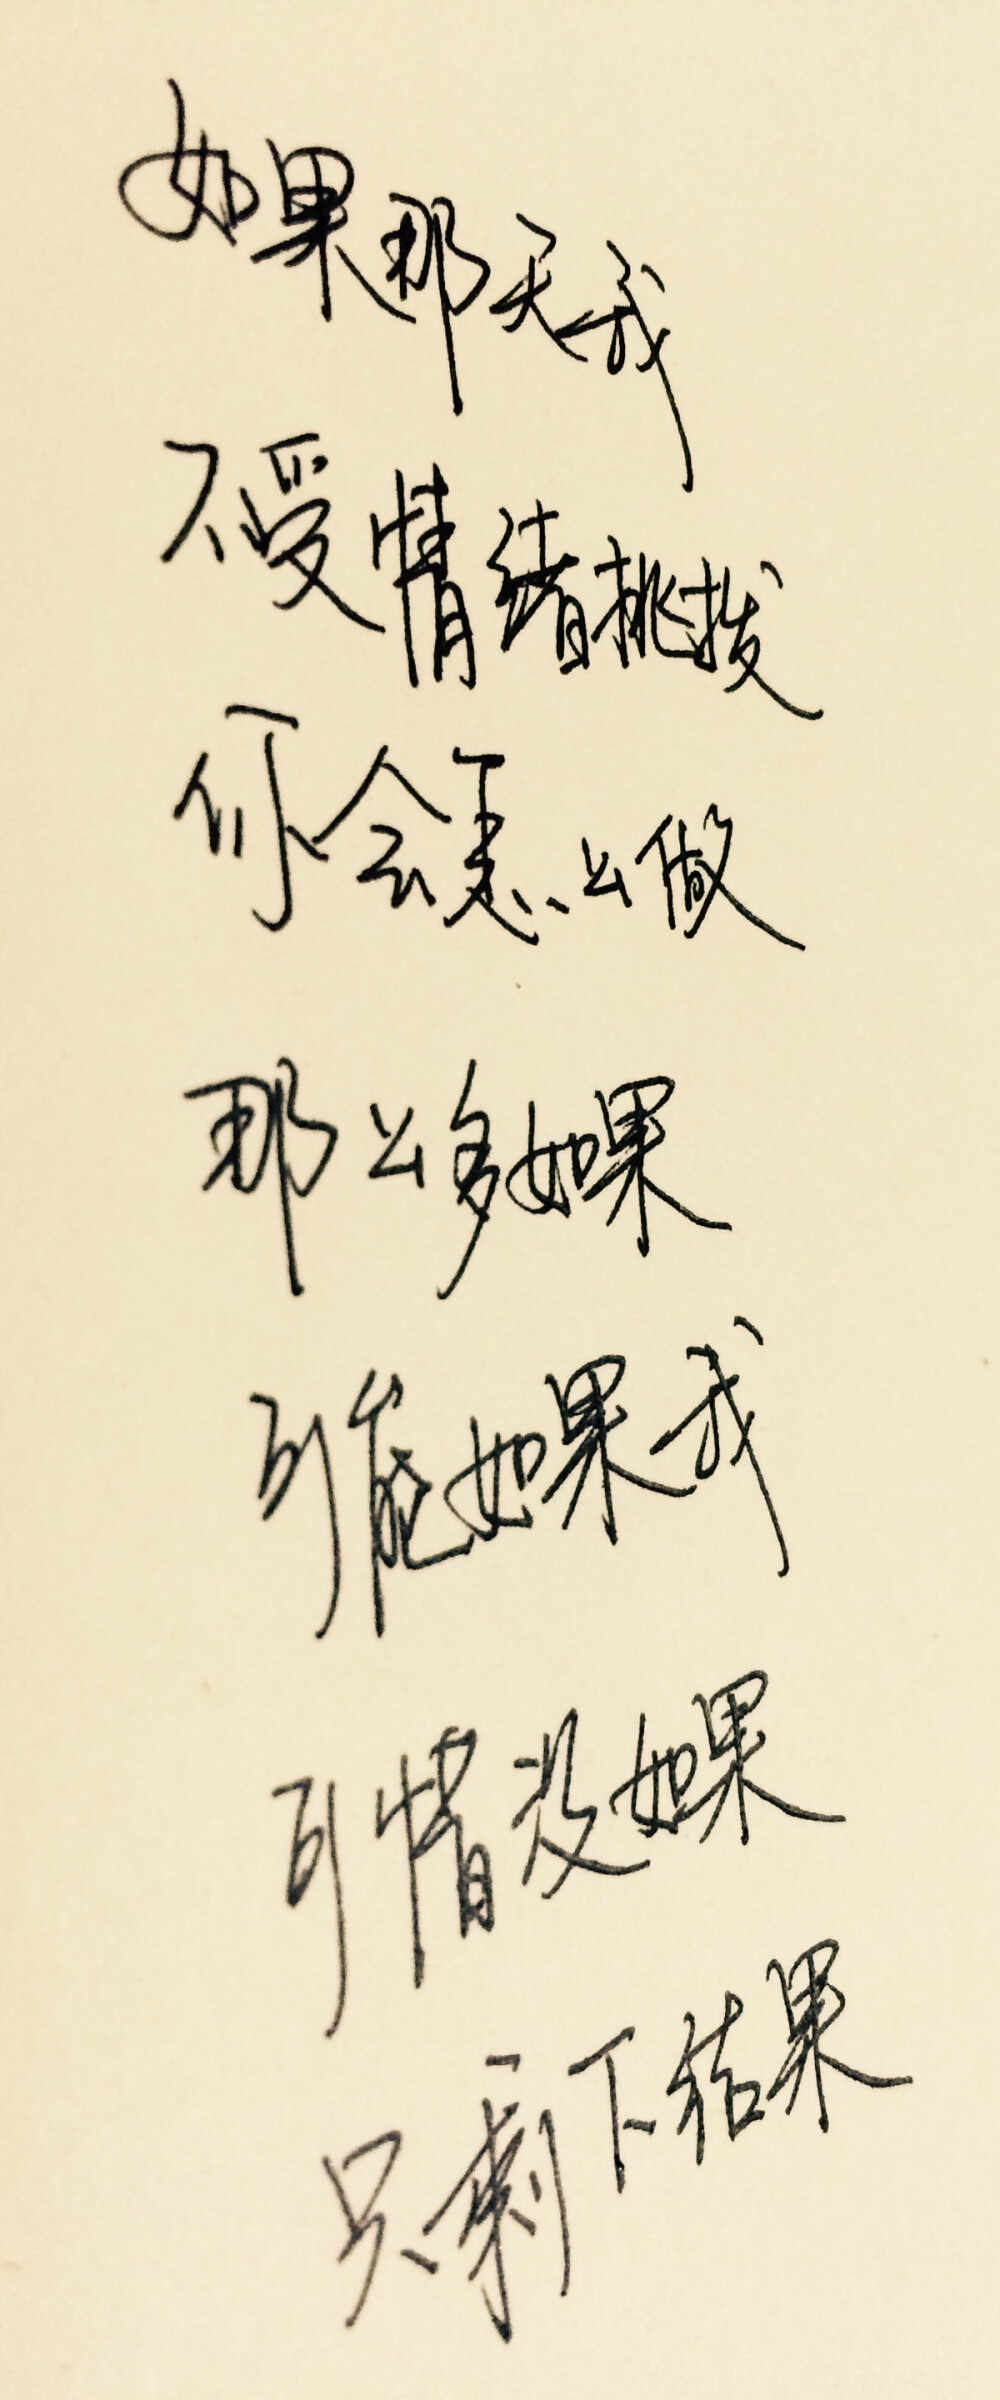 如果那天我
不受情绪挑拨
你会怎么做
那么多如果
可能如果我
可惜没如果
只剩下结果